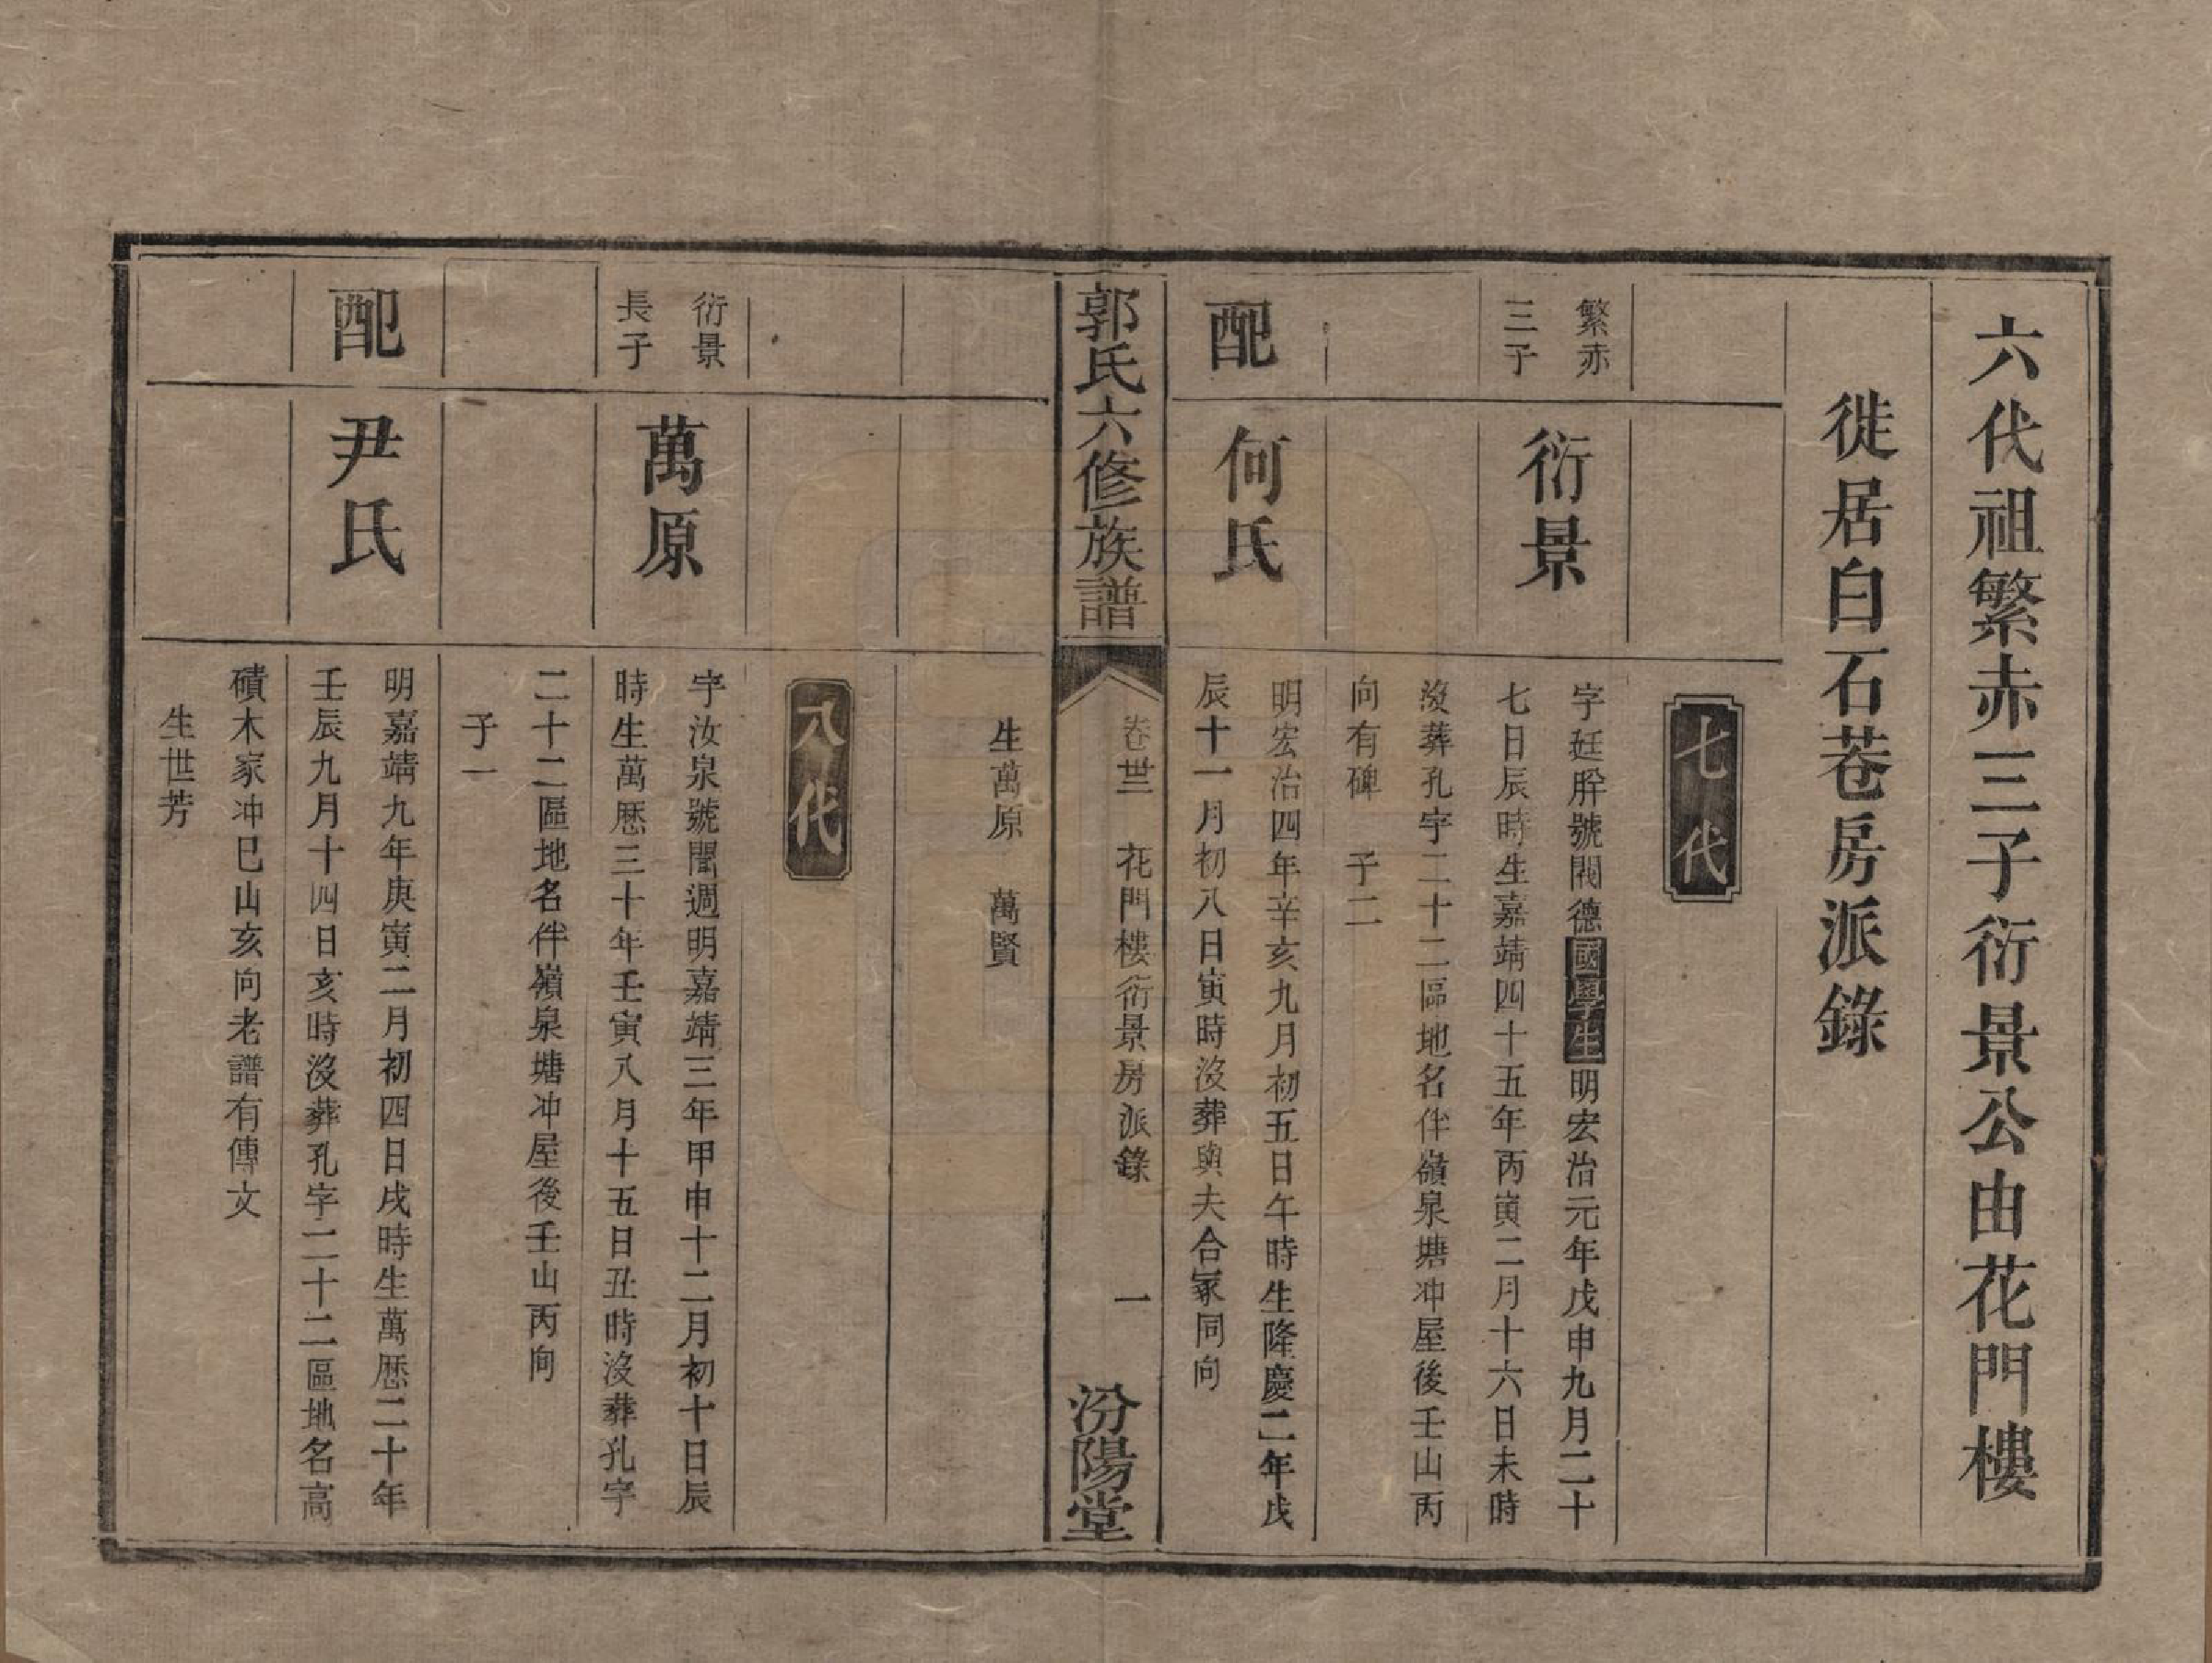 六代祖繁赤三子衍景公由花門樓
徙居白石巷房派錄
七代
繁赤
三子
衍景
字廷胖號閥德國學生明宏治元年戊申九月二十
七日辰時生嘉靖四十五年丙寅二月十六日未時
沒葬孔字二十二區地名伴嶺泉塘冲屋後壬山丙
向有碑 子二
配
何氏
明宏治四年辛亥九月初五日午時生隆慶二年戊
辰十一月初八日寅時沒葬與夫合冢同向
郭氏六修族譜
卷卋 花門樓衍景房派錄
一
汾陽堂
生萬原 萬賢
八代
衍景
長子
萬原
字汝泉號聞週明嘉靖三年甲申十二月初十日辰
時生萬歷三十年壬寅八月十五日丑時沒葬孔字
二十二區地名伴嶺泉塘冲屋後壬山丙向
子一
配
尹氏
明嘉靖九年庚寅二月初四日戌時生萬歷二十年
壬辰九月十四日亥時沒葬孔字二十二區地名高
磧木家冲巳山亥向老譜有傳文
生世芳